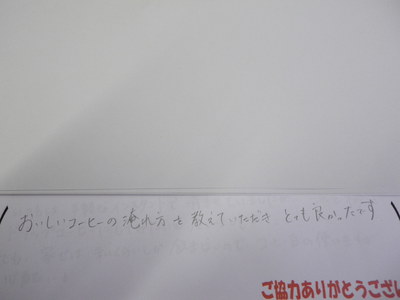 おいしいコーヒーの淹れ方を教えていただきとても良かったです
ご協力ありがとうござい